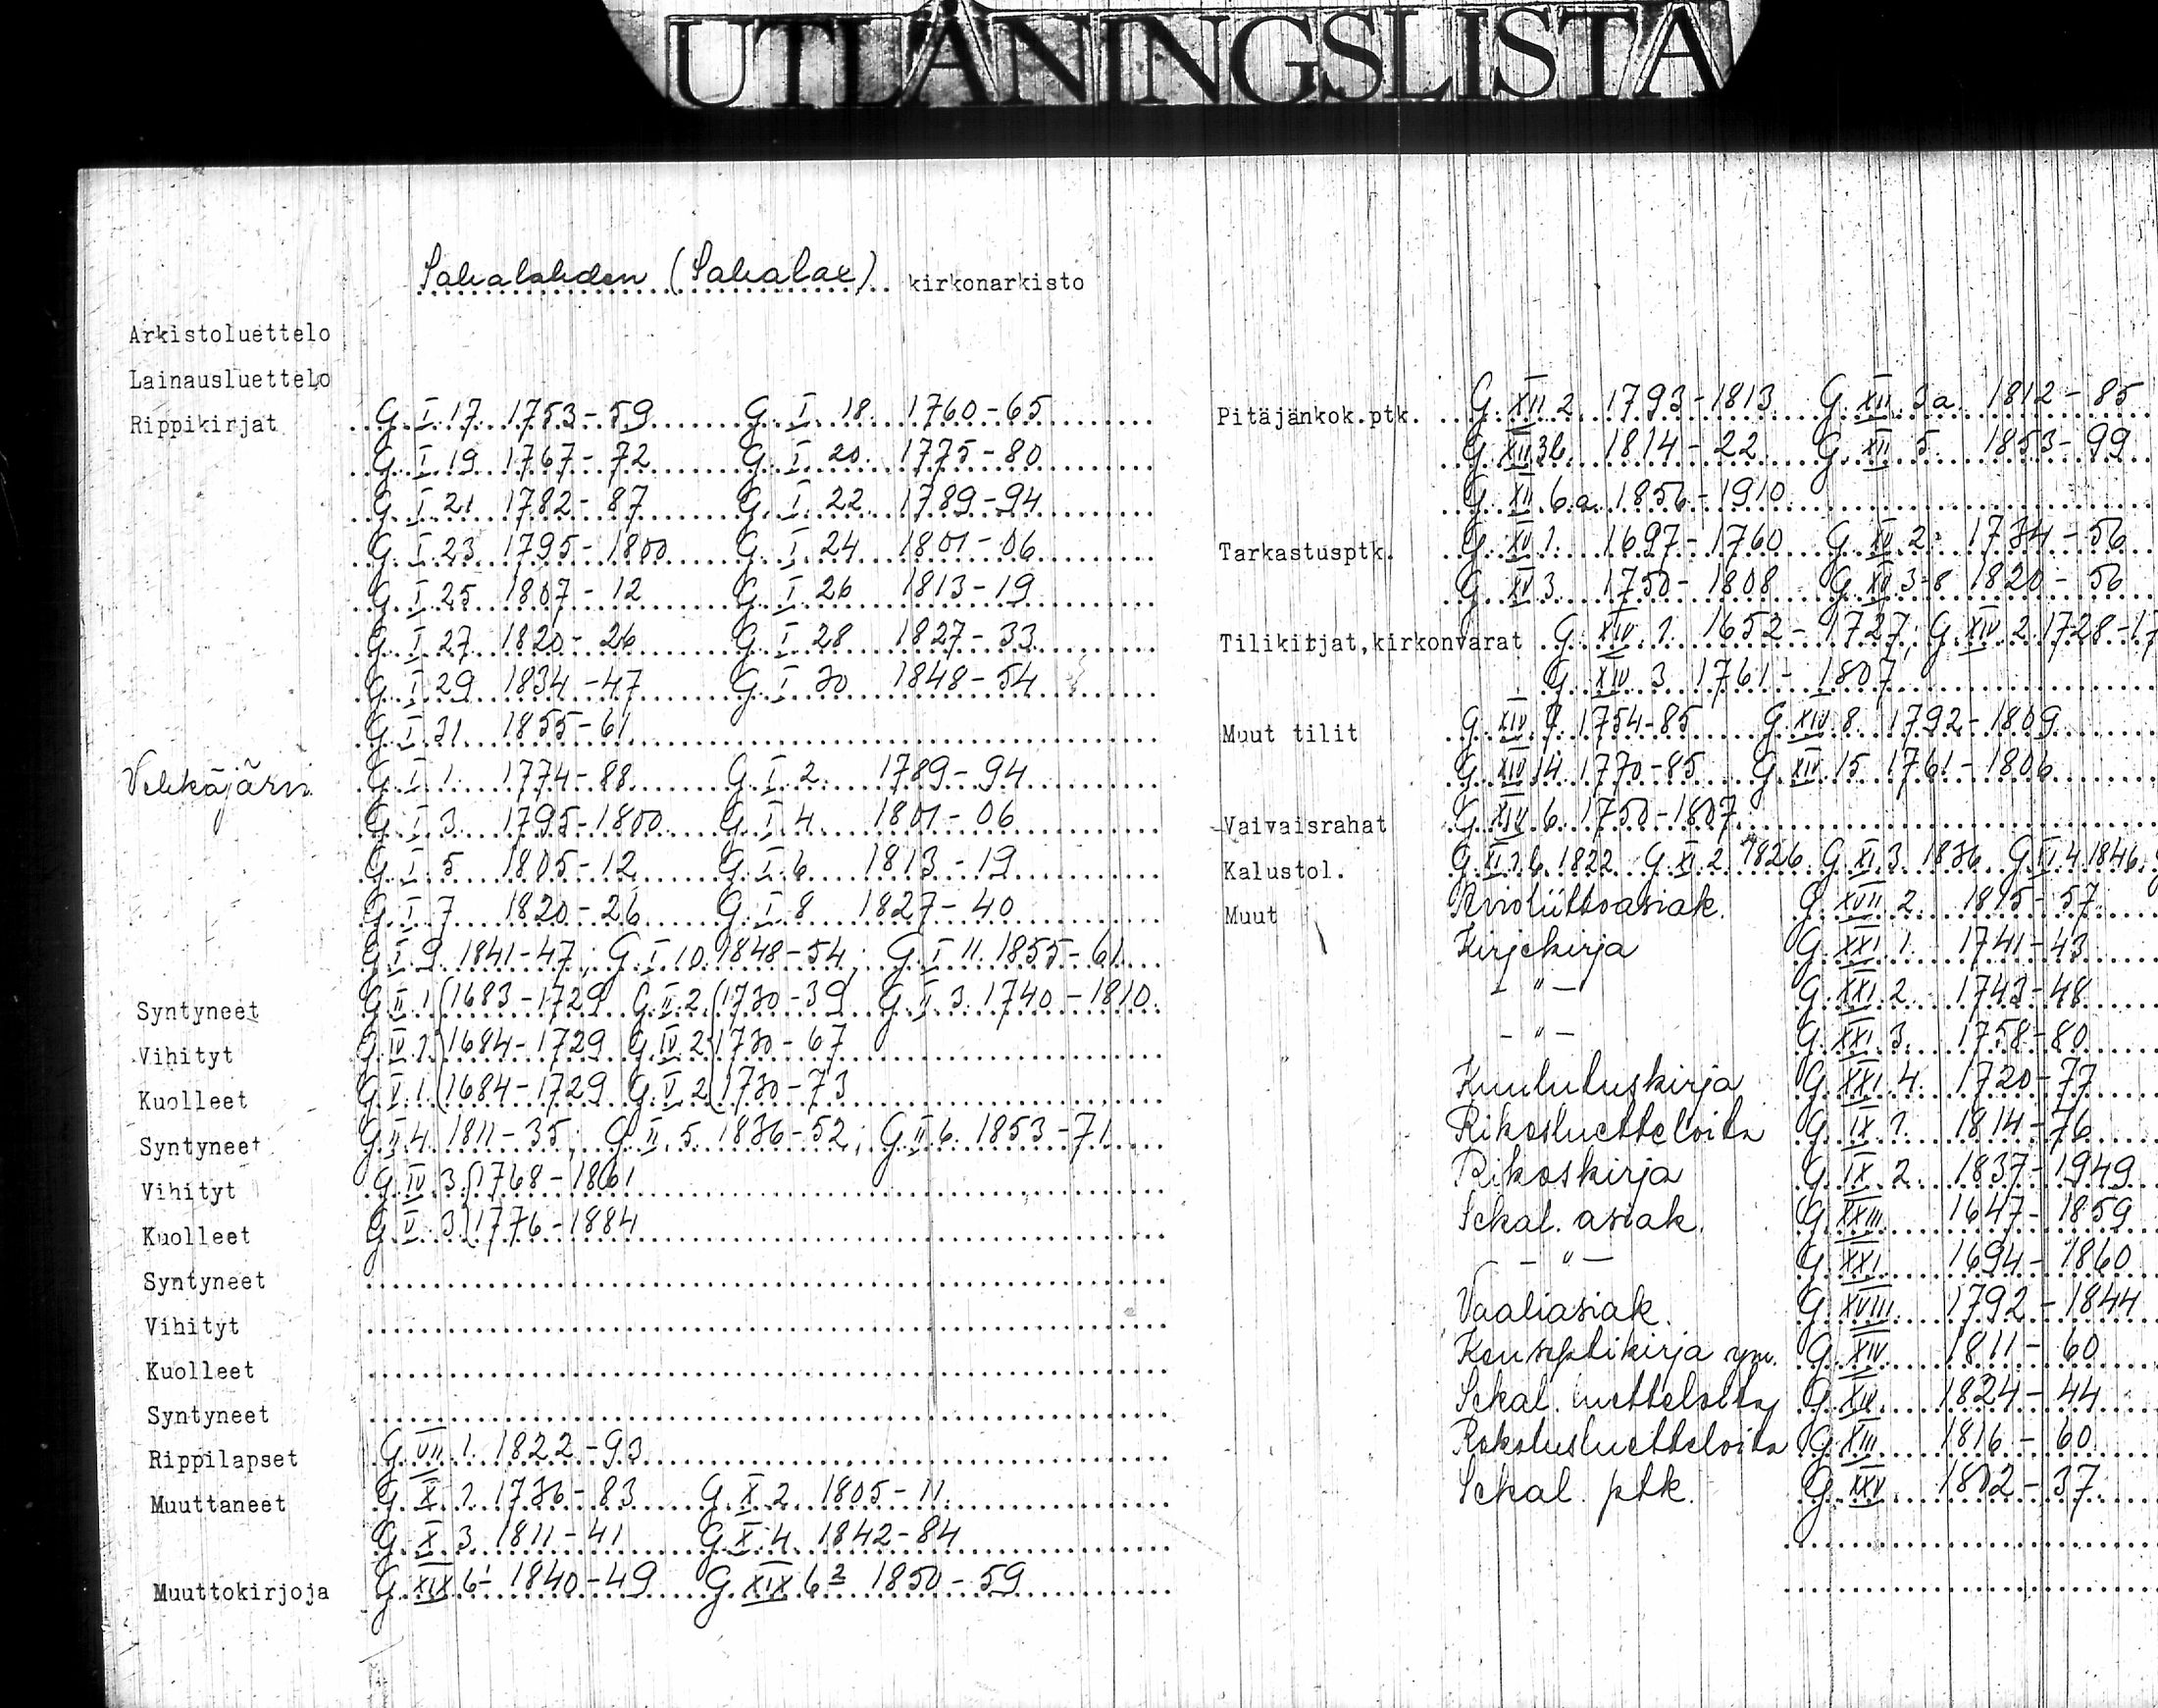 UTLÅNINGSLISTA
Sahalahden (Sahalax) kirkonarkisto
Arkistoluettelo
Lainausluettelo
Rippikirjat G. I. 17. 1753-59 G. I. 18. 1760-65
G. I. 19 1767-72 G. I. 20. 1775-80
G. I. 21 1782-87 G. I. 22 1789-94
G. I. 23 1795-1800 G. I. 24 1801-06
G. I. 25 1807-12 G. I. 26 1813-19
G. I. 27 1820-26 G. I. 28 1827-33
G. I. 29 1834-47 G. I. 30 1848-54
G. I. 31 1855-61
Vehkajärvi G. I. 1. 1774-88 G. I. 2. 1789-94
G. I. 3. 1795-1800 G. I. 4. 1801-06
G. I. 5 1805-12 G. I. 6 1813-19
G. I. 7 1820-26 G. I. 8 1827-40
G. I. 9. 1841-47; G. I. 10. 1848-54; G. I. 11. 1855-61
Syntyneet G. II. 1. 1683-1729 G. II. 2. 1730-39 G. II. 3. 1740-1810.
Vihityt G. IV. 1. 1684-1729 G. IV. 2. 1730-67
Kuolleet G. V. 1. 1684-1729 G. V. 2. 1730-73
Syntyneet G. II. 4. 1811-35; G. II. 5. 1836-52; G. II. 6. 1853-71
Vihityt G. IV. 3. 1768-1861
Kuolleet G. V. 3. 1776-1884
Syntyneet
Vihityt
Kuolleet
Syntyneet
Rippilapset G. VII. 1. 1822-93
Muuttaneet G. X. 1. 1786-83 G. X. 2. 1805-11.
G. X. 3. 1811-41 G. X. 4. 1842-84
Muuttokirjoja G. XIX 6¹ 1840-49 G. XIX 6² 1850-59
Pitäjänkok.ptk. G. XII. 2. 1793-1813 G. XII. 3a. 1812-85
G. XII 3b. 1814-22 G. XII. 5. 1853-99
G. XII. 6.a. 1856-1910
Tarkastusptk. G. XV. 1. 1697-1760 G. XV. 2. 1734-56
G. XV 3. 1750-1808 G. XV 3-8 1820-56
Tilikirjat,kirkonvarat G. XIV. 1. 1652-1727; G. XIV 2. 1728-17
G. XIV 3 1761-1807
Muut tilit G. XIV. 7. 1754-85 G. XIV 8. 1792-1809
G. XIV 14. 1770-85 G. XIV. 15 1761-1806
Vaivaisrahat G. XIV. 6. 1750-1807
Kalustol. 1822 G. XI. 2. 1826. G. XI. 3. 1836. 1846.
Muut Avioliittoasiak. G. XVII. 2. 1815-57
Kirjekirja G. XXI. 1. 1741-43
- " - G. XXI. 2. 1743-48
- " - G. XXI. 3. 1758-80
Kuulutuskirja G. XXI. 4. 1720-77
Rikosluetteloita G. IX. 1. 1814-76
Rikoskirja G. IX. 2. 1837-1949
Sekal. asiak. G. XXIII 1647-1859
- " - G. XXI 1694-1860
Vaaliasiak. G. XVIII. 1792-1844
Konseptikirja ym. G. XIV 1811-60
Sekal. luetteloita 1824-44
Rokotusluetteloita G. XIII 1816-60
Sekal. ptk. G. XXV. 1802-37